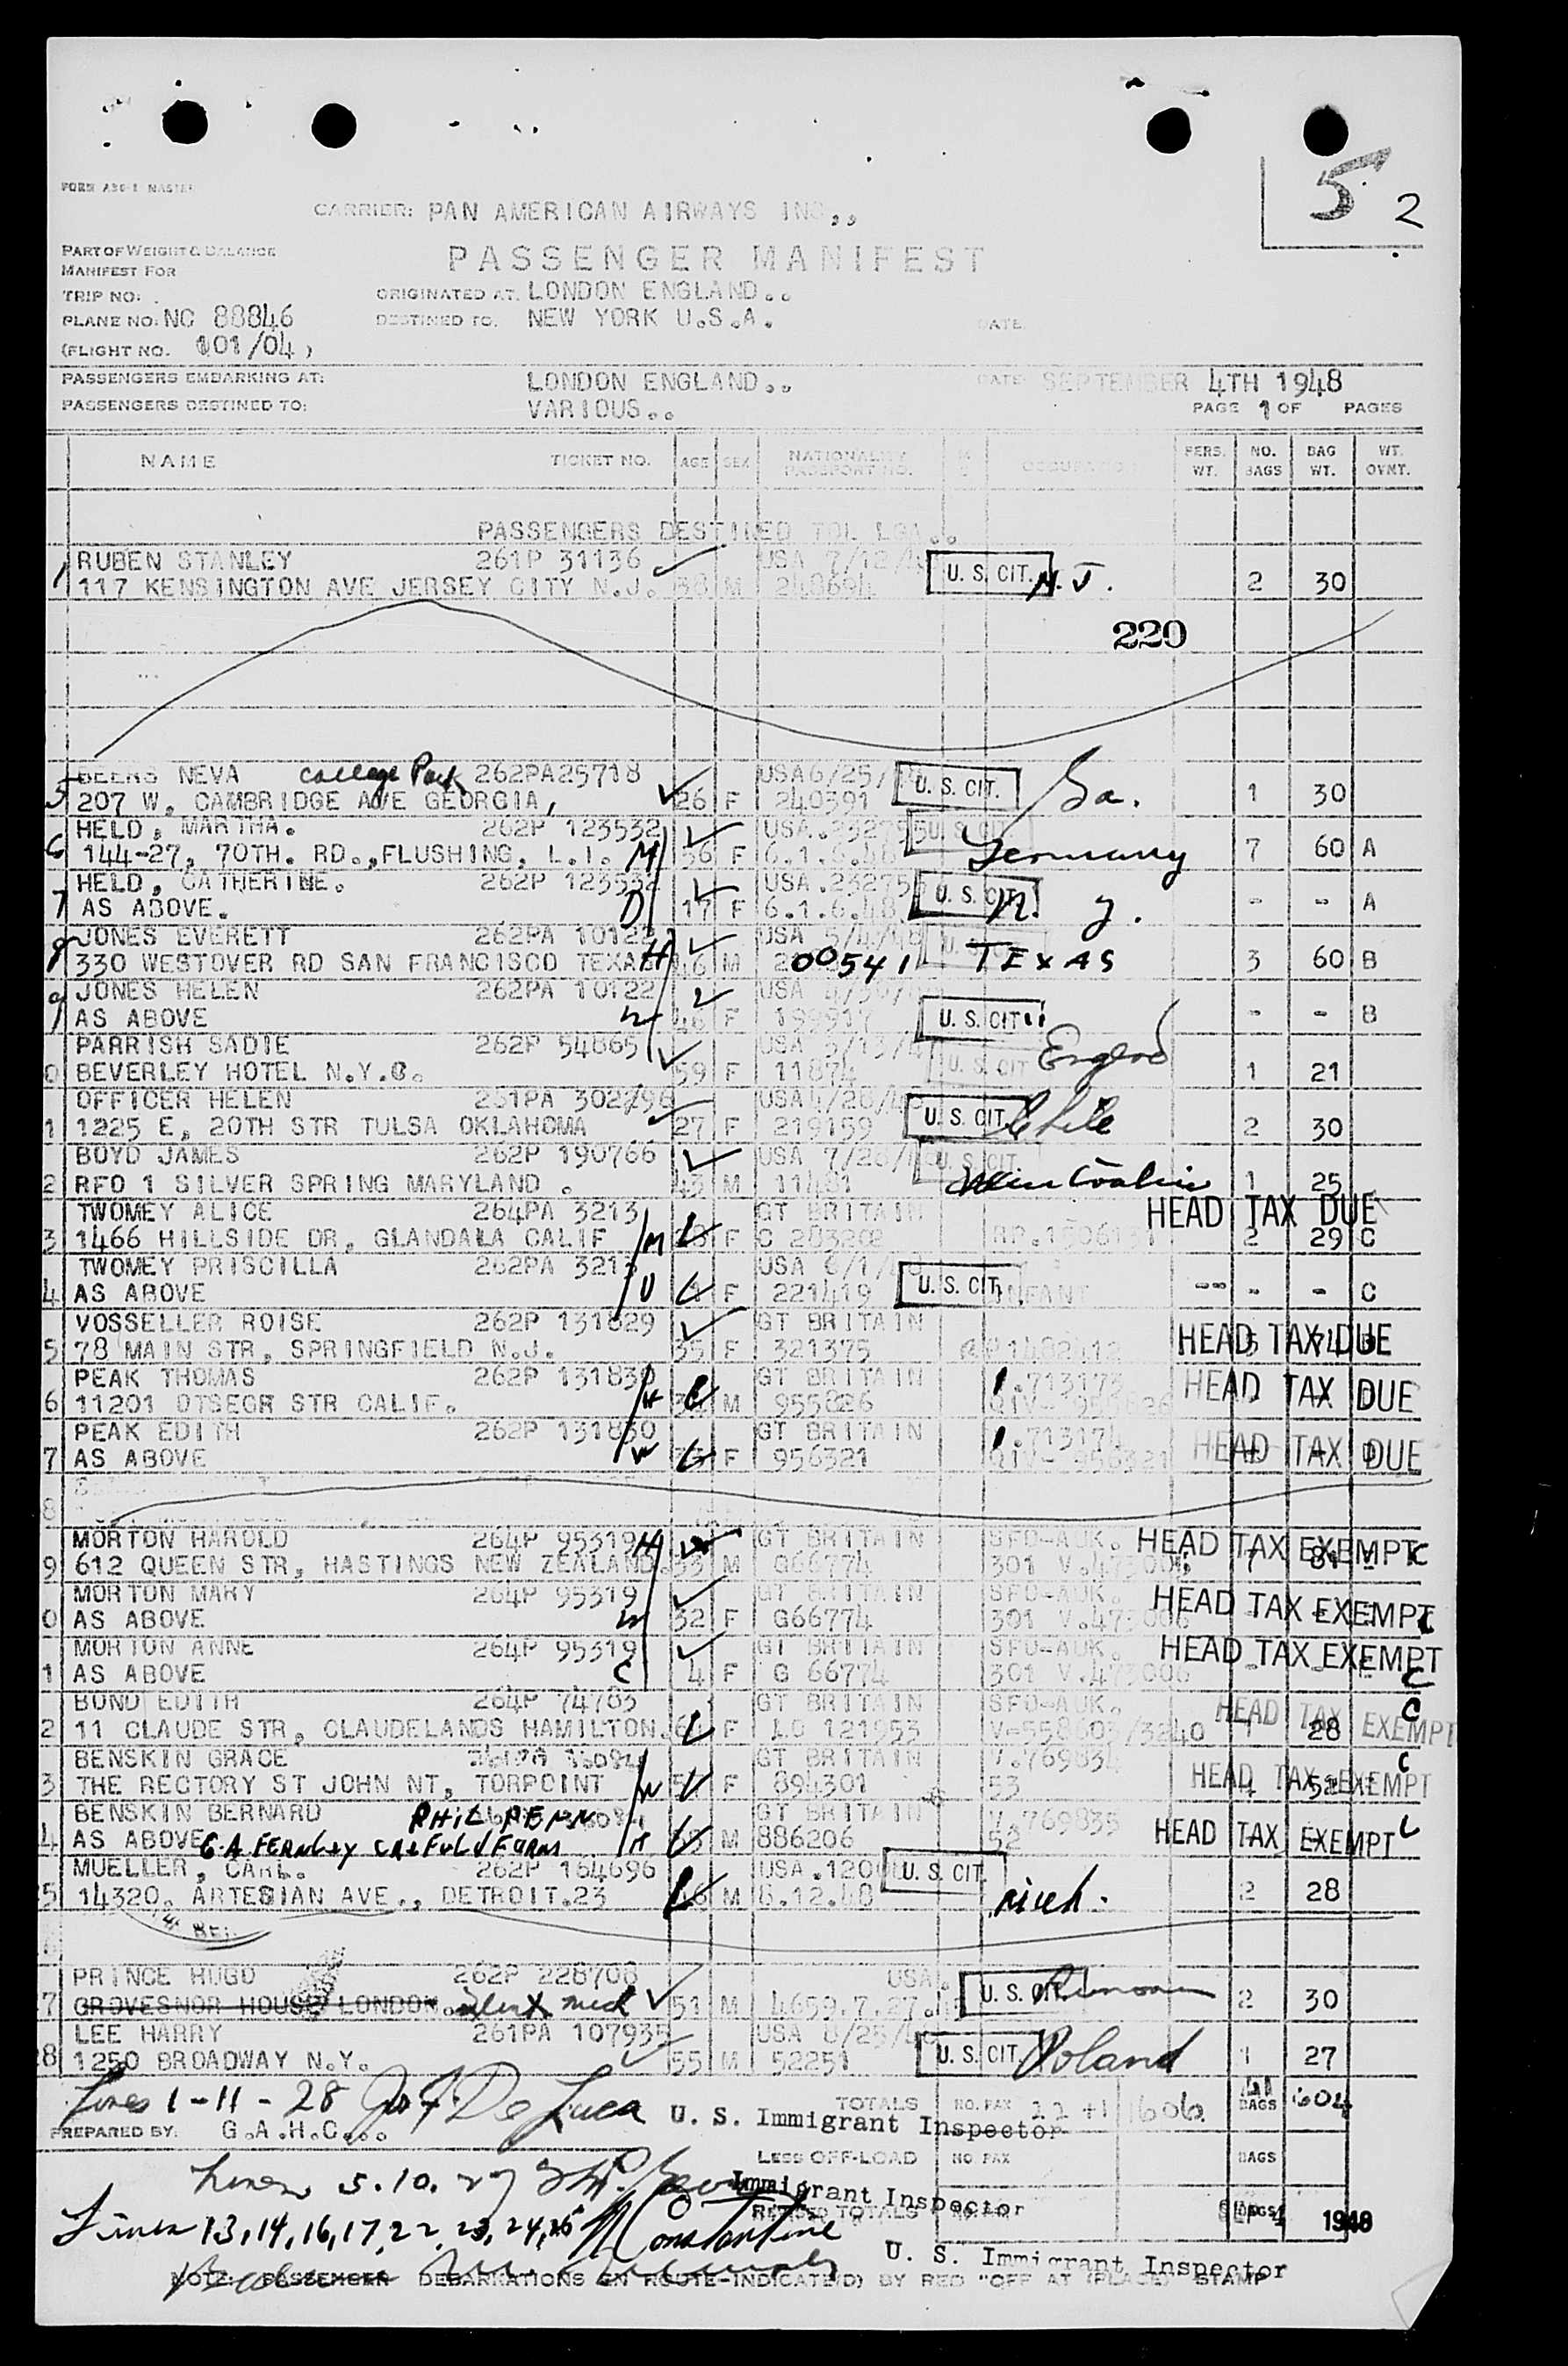 5 2
FORM
CARRIER: PAN AMERICAN AIRWAYS INC.,
PART OF WEIGHT & BALANCE
MANIFEST FOR
PASSENGER MANIFEST
TRIP NO:
ORIGINATED AT. LONDON ENGLAND..
PLANE NO: NC 88846
DESTINED TO. NEW YORK U.S.A.
DATE
(FLIGHT NO. 101/04)
PASSENGERS EMBARKING AT: LONDON ENGLAND.. DATE SEPTEMBER 4TH 1948
PASSENGERS DESTINED TO: VARIOUS.. PAGE 1 OF PAGES
NAME TICKET NO. AGE SEX NATIONALITY PASSPORT NO. OCCUPATION PERS. WT. NO. BAGS BAG WT. WT. OVMT.
PASSENGERS DESTINED LGA..
RUBEN STANLEY 261P 31136 USA 7/12/
1 117 KENSINGTON AVE JERSEY CITY N.J. 38 M 248694 U. S. CIT. N. J. 2 30
220
5 BEERS NEVA College Park 262PA25718 USA6/25/
207 W. CAMBRIDGE AVE GEORGIA, 26 F 240391 U. S. CIT. Ga. 1 30
HELD, MARTHA. 262P 123532 USA.232755 U. S. CIT.
6 144-27, 70TH. RD.,FLUSHING, L.I. M 56 F 6.1.6.48 Germany 7 60 A
HELD, CATHERINE. 262P 123532 USA.232756 U. S. CIT.
7 AS ABOVE. D 17 F 6.1.6.48 N. Y. - - A
8 JONES EVERETT 262PA 10122 USA 5/4/48
330 WESTOVER RD SAN FRANCISCO TEXAS H 46 M 00541 TEXAS 3 60 B
9 JONES HELEN 262PA 10122 USA
AS ABOVE W 46 F 199917 U. S. CIT. " - - B
PARRISH SADIE 262P 54865 USA 5/13/4
0 BEVERLEY HOTEL N.Y.C. 59 F 11874 U. S. CIT England 1 21
OFFICER HELEN 261PA 302296 USA4/28/48
1 1225 E, 20TH STR TULSA OKLAHOMA 27 F 219159 U. S. CIT. Chile 2 30
BOYD JAMES 262P 190766 USA 7/28/ U. S. CIT.
2 RFD 1 SILVER SPRING MARYLAND . 43 M 11481 1 25
TWOMEY ALICE 264PA 3213 GT BRITAIN HEAD TAX DUE
3 1466 HILLSIDE DR, GLANDALA CALIF M F C 283202 2 29 C
TWOMEY PRISCILLA 262PA 3213 USA 6/1/48
4 AS ABOVE D F 221419 U. S. CIT. INFANT -- - - C
VOSSELLER ROISE 262P 131829 GT BRITAIN
5 78 MAIN STR, SPRINGFIELD N.J. 35 F 321375 1482412 HEAD TAX DUE
PEAK THOMAS 262P 131830 GT BRITAIN .713173
6 11201 OTSEGR STR CALIF. H M 955826 HEAD TAX DUE
PEAK EDITH 262P 131830 GT BRITAIN .713174
7 AS ABOVE W F 956321 QIV- 956321 HEAD TAX DUE
8
MORTON HAROLD 264P 95319 H GT BRITAIN SFO-AUK. HEAD TAX EXEMPT C
9 612 QUEEN STR, HASTINGS NEW ZEALAND. 33 M G66774 301 V.473006
MORTON MARY 264P 95319 GT BRITAIN SFO-AUK. HEAD TAX EXEMPT C
0 AS ABOVE W 32 F G66774 301 V.473006
MORTON ANNE 264P 95319 GT BRITAIN SFO-AUK. HEAD TAX EXEMPT
1 AS ABOVE C 4 F G 66774 301 V.473006 C
BOND EDITH 264P 74783 GT BRITAIN SFO-AUK. C
2 11 CLAUDE STR, CLAUDELANDS HAMILTON. F LO 121953 V-558603/3240 HEAD TAX EXEMPT 1 28
BENSKIN GRACE GT BRITAIN V.769834 C
3 THE RECTORY ST JOHN NT, TORPOINT W F 894301 53 HEAD TAX EXEMPT
BENSKIN BERNARD PHIL, PENN GT BRITAIN V.769835
4 AS ABOVE H M 886206 52 HEAD TAX EXEMPT
MUELLER, CARL. 262P 164696 USA.120 U. S. CIT.
5 14320. ARTESIAN AVE., DETROIT.23 46 M 6.12.48 Mich. 2 28
PRINCE HUGO 262P 228708 USA.
7 GROVESNOR HOUSE LONDON. Flint Mich 51 M 4659.7.27. U. S. CIT. 2 30
LEE HARRY 261PA 107935 USA 8/25/48
28 1250 BROADWAY N.Y. 55 M 52251 U. S. CIT. Poland 1 27
Lines 1-11-28 De Luca U. S. Immigrant Inspector
TOTALS NO. PAX 22 +1 1606 BAGS 604
PREPARED BY: G.A.H.C...
LESS OFF-LOAD NO. PAX BAGS
Lines 5.10.27 Immigrant Inspector
REVISED TOTALS BAGS 1948
Lines 13,14,16,17,22,23,24,25 Constantine
U. S. Immigrant Inspector
NOTE: PASSENGER DEBARKATIONS EN ROUTE-INDICATE(D) BY RED "OFF AT (PLACE)" STAMP